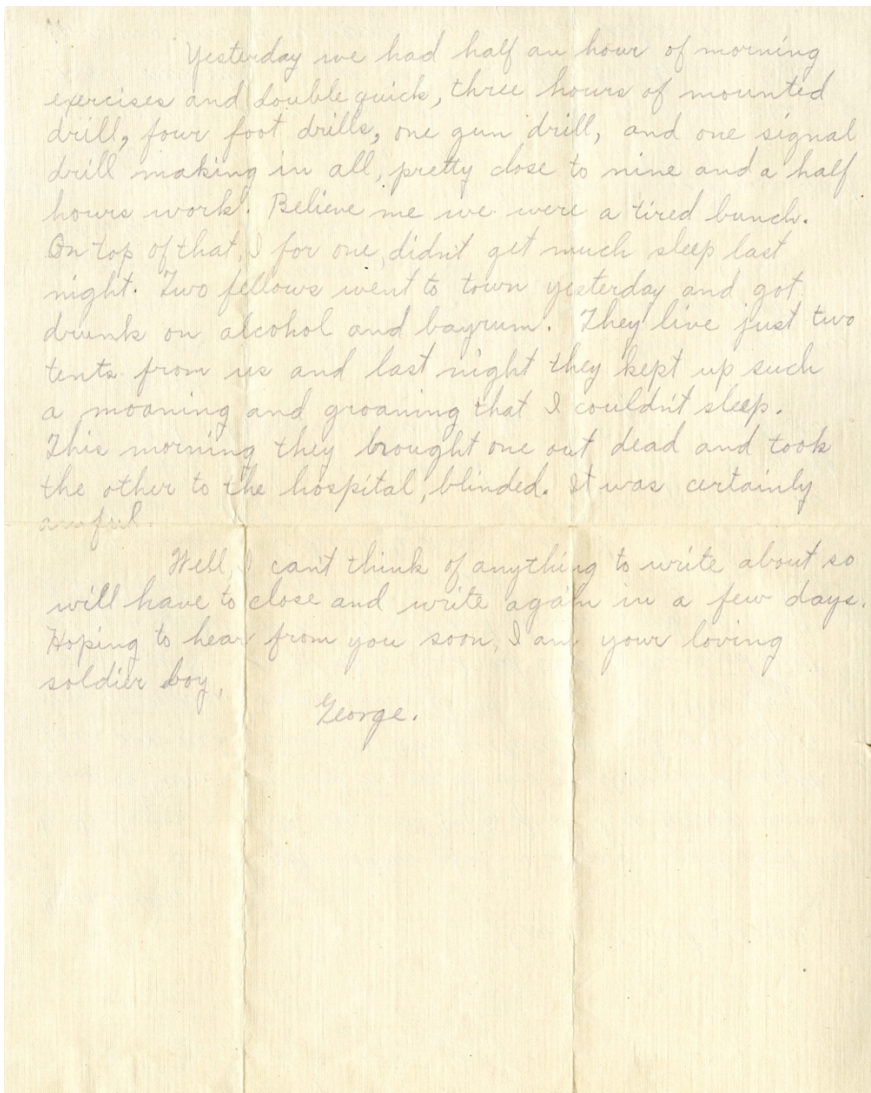 Yesterday we had half an hour of morning
exercises and double quick, three hours of mounted
drill, four foot drills, one gun drill, and one signal
drill making in all, pretty close to nine and a half
hours work. Believe me we were a tired bunch.
On top of that, I for one, didn't get much sleep last
night. Two fellows went to town yesterday and got
drunk on alcohol and bayrum. They live just two
tents from us and last night they kept up such
a moaning and groaning that I couldn't sleep.
This morning they brought one out dead and took
the other to the hospital, blinded. It was certainly
awful.
Well, I can't think of anything to write about so
will have to close and write again in a few days.
Hoping to hear from you soon, I am your loving
soldier boy,
George.